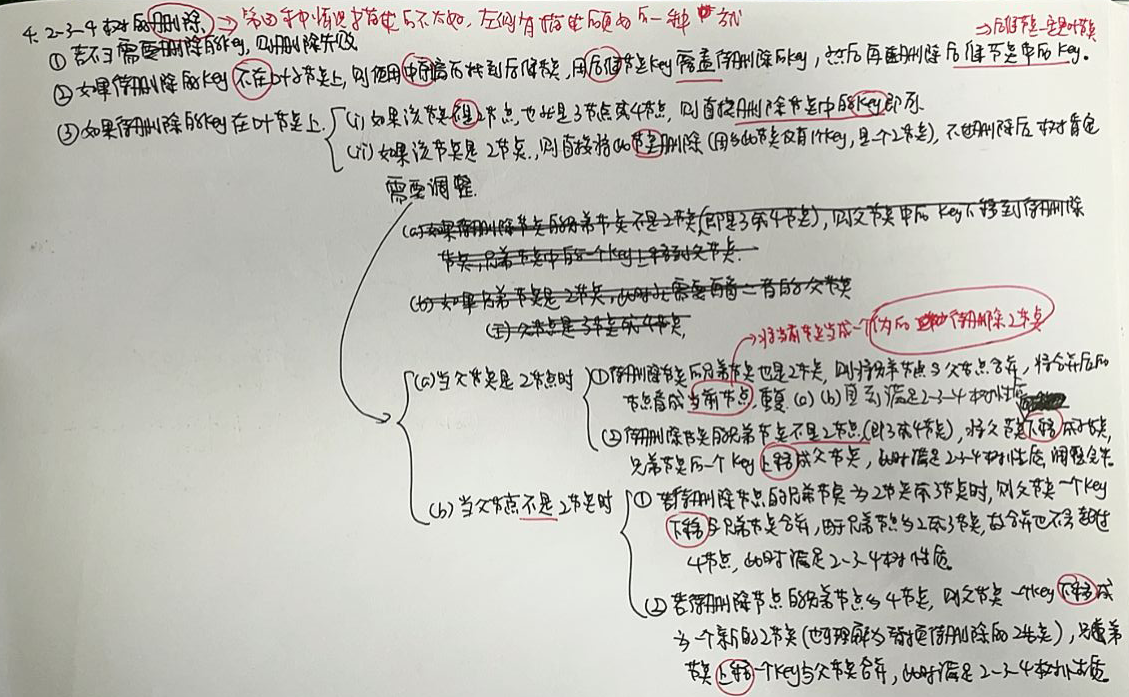 4. 2-3-4树的删除
→后继节点一定是叶节点
① 若不了需要删除的key, 则删除失败
② 如果待删除的key不在叶子节点上, 则使用中序遍历找到后继节点, 用后继节点key覆盖待删除的key, 然后再删除后继节点中的key.
③ 如果待删除的key在叶节点上.
(i) 如果该节点不是2节点, 也就是3节点或4节点, 则直接删除节点中的key即可.
(ii) 如果该节点是2节点, 则直接将此节点删除(因为此节点仅有1个key, 是一个2节点), 不过删除后树肯定
需要调整.
(a) 如果待删除节点的兄弟节点不是2节点(即是3或4节点), 则父节点中的key下移到待删除
节点, 兄弟节点中的一个key上移到父节点.
(b) 如果兄弟节点是2节点, 此时需要再看二者的父节点
(I) 父节点是3节点或4节点,
→将当前节点当成一个伪的待删除2节点
(a) 当父节点是2节点时
① 待删除节点的兄弟节点也是2节点, 则将兄弟节点与父节点合并, 将合并后的
节点看成当前节点. 重复(a)(b)直到满足2-3-4树性质
② 待删除节点的兄弟节点不是2节点(即3或4节点), 将父节点下移成子节点,
兄弟节点的一个key上移成父节点, 此时满足2-3-4树性质, 调整完毕.
(b) 当父节点不是2节点时
① 若待删除节点的兄弟节点为2节点或3节点时, 则父节点一个key
下移与兄弟节点合并, 由于兄弟节点为2或3节点, 故合并也不会超过
4节点, 此时满足2-3-4树性质.
② 若待删除节点的兄弟节点为4节点, 则父节点一个key下移成
为一个新的2节点(也可理解为替换待删除的2节点), 兄弟
节点上移一个key与父节点合并, 此时满足2-3-4树性质.